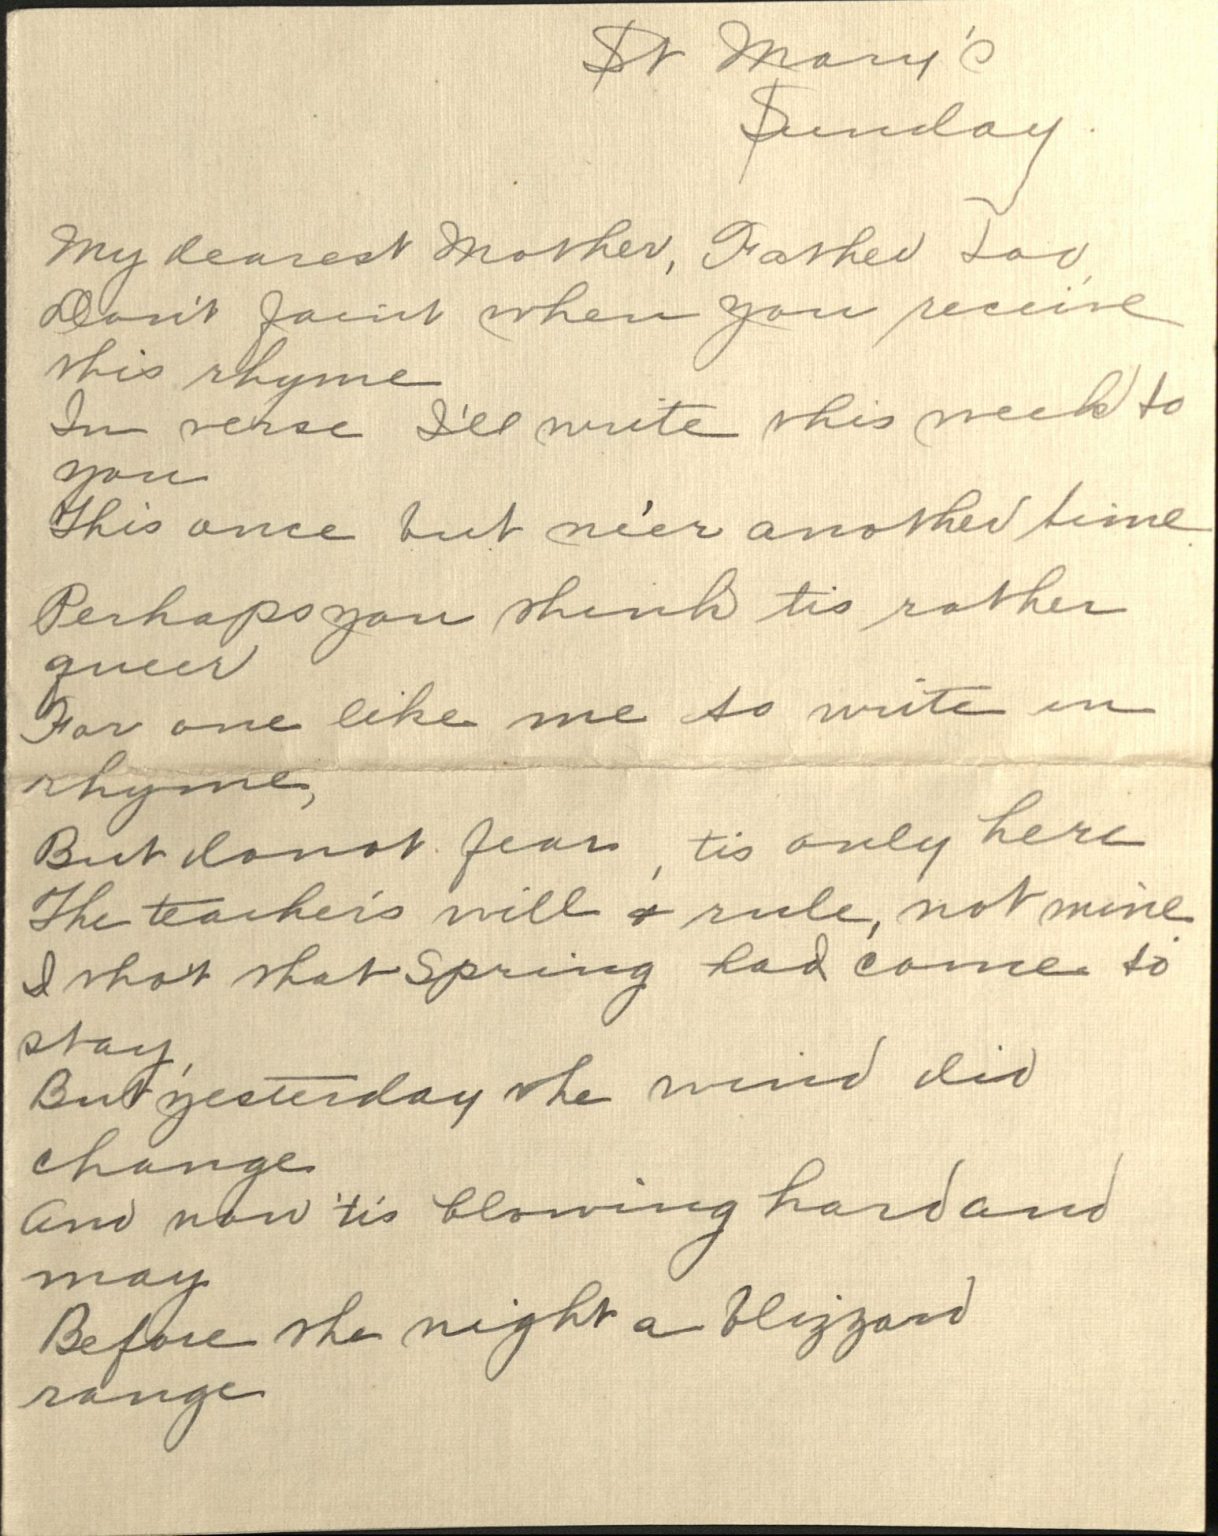 St Mary's
Sunday.
My dearest Mother, Father too,
Don't faint when you receive
this rhyme
In verse I'll write this week to
you
This once but ne'er another time.
Perhaps you think tis rather
queer
For one like me to write in
rhyme,
But do not fear, tis only here
The teacher's will & rule, not mine.
I tho't that Spring had come to
stay,
But yesterday the wind did
change
And now 'tis blowing hard and
may
Before the night a blizzard
range